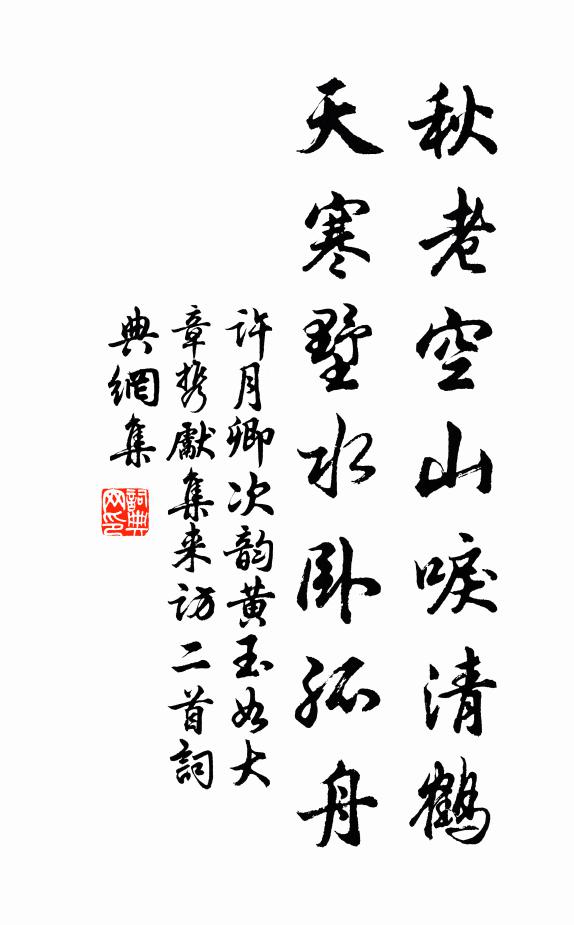 秋老空山唳清鹤
天寒墅水卧孤舟
许月卿次韵黄玉如大
章携獻集来访二首詞
典網集
詞典网印